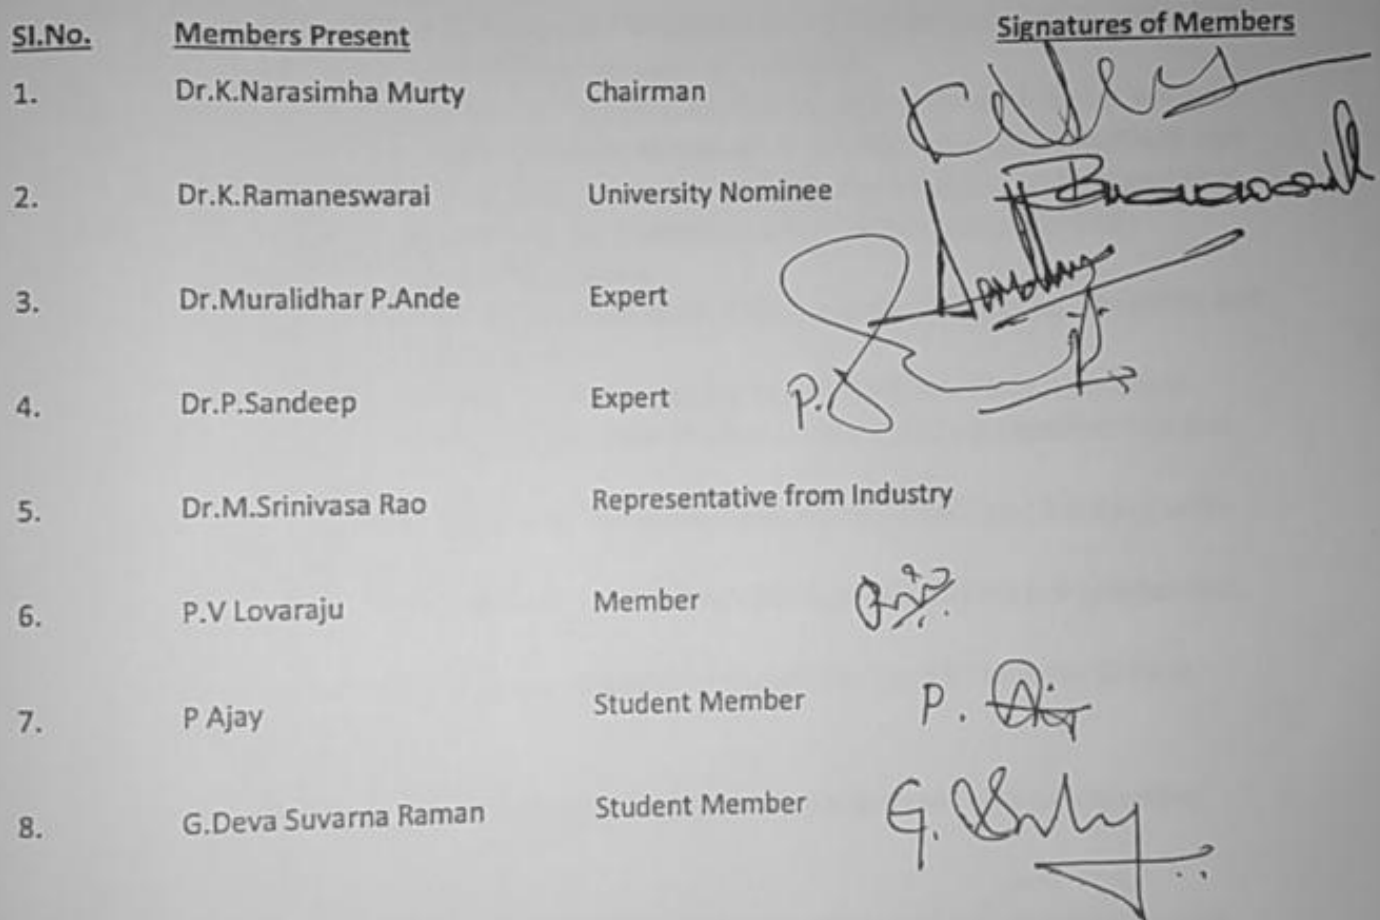 Sl.No. Members Present Signatures of Members
1. Dr.K.Narasimha Murty Chairman
2. Dr.K.Ramaneswarai University Nominee
3. Dr.Muralidhar P.Ande Expert
4. Dr.P.Sandeep Expert P.
5. Dr.M.Srinivasa Rao Representative from Industry
6. P.V Lovaraju Member
7. P Ajay Student Member P.
8. G.Deva Suvarna Raman Student Member G.